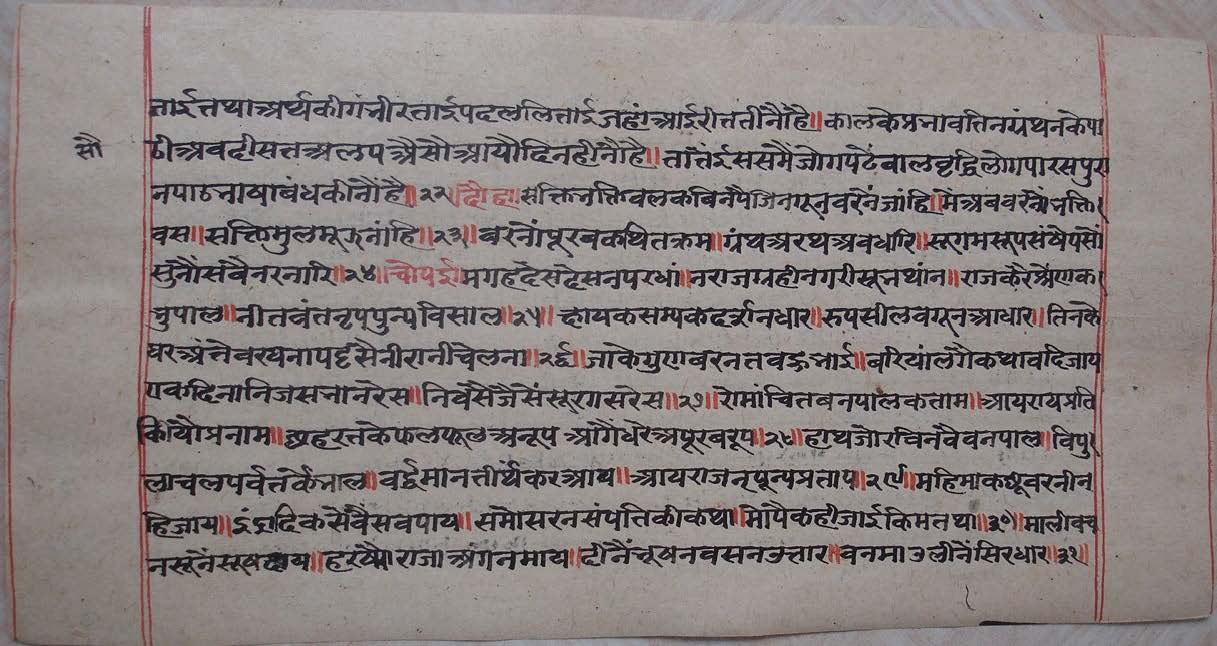 ताईतथाअर्थकीगंभीरताईपदललिताईजहांआईरीततीनौंहै॥कालकेप्रभावतिनग्रंथनकेपा
सौ
ठीअवदीसतअलपअैसौआयौदिनहीनौहै॥तांतंईससमैंजोगपढैंबालवृद्धिलोगपारसपुरा
नपाठभाषाबंधकीनौंहै॥२२॥दौहा॥सक्तिभक्तिवलकविनपैजिनगुनवरनैंनजांहि॥मैअबवरनौंभक्ति
वस॥सक्तिमुलमूऊनांहि॥२३॥वरनौंपूरबकथितक्रम॥ग्रंथअरथअवधारि॥सूगमसूपसंषेपसौं
सुनौंसंवैनरनारि॥२४॥चौपई॥मगहदेसदेसनपरधां॥नराजग्रहीनगरीसूभथांन॥राजकरैश्रैणक
भुपाल॥नीतवंतनृपपुन्यविसाल॥२५॥छायकसम्यकदर्शनधार॥रुपसीलवगुनआधार॥तिनकै
घरअंतेवरघनापट्टसैनीरानीचेलना॥२६॥जाकेगुणवरनतवहुभाई॥वरियांलगैकथावढिजाय
एकदिनानिजसभानरेस॥निवसैजैसेंसूरगसरेस॥२७॥रोमांचितबनपालकताम॥आयरायप्रति
कियौप्रनाम॥छहरतकेफलफूलअनूप॥आगैंधरेअपूरवरूप॥२८॥हाथजोरविनवैवनपाल॥विपु
लाचलपर्वतकेंभाल॥वर्द्धमानतीर्थकरआय॥आयराजनपून्यप्रताप॥२९॥महिमाकछूवरनीन
हिजाय॥इंद्रादिकसेवैंसवपाय॥समोसरनसंपतिकीकथा॥मोपैकहीजाईकिमतथा॥३०॥मालीवच
नसूनेंसूषदाय॥हरष्यौराजाअंगनमाय॥दीनैंभूषनवसनउतार॥वनमाउलीनैंसिरधार॥३१॥